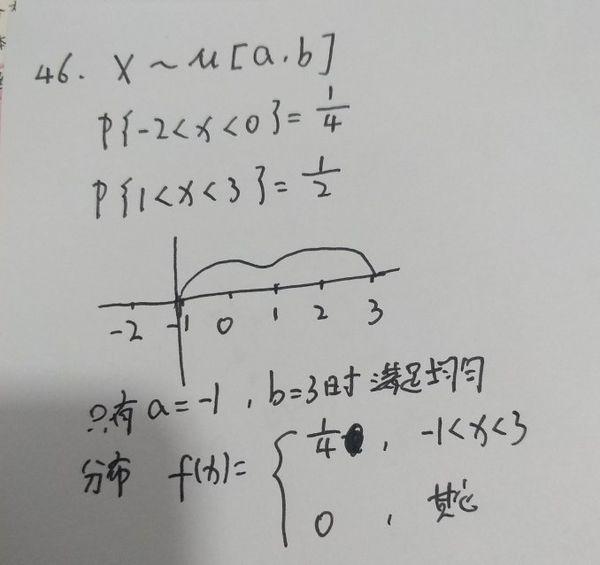 46. X ~ u [a.b]
P{-2<x<0}=1/4
P{1<x<3}=1/2
-2 -1 0 1 2 3
只有 a=-1, b=3时 满足均匀
分布 f(x)= { 1/4 , -1<x<3
0 , 其它